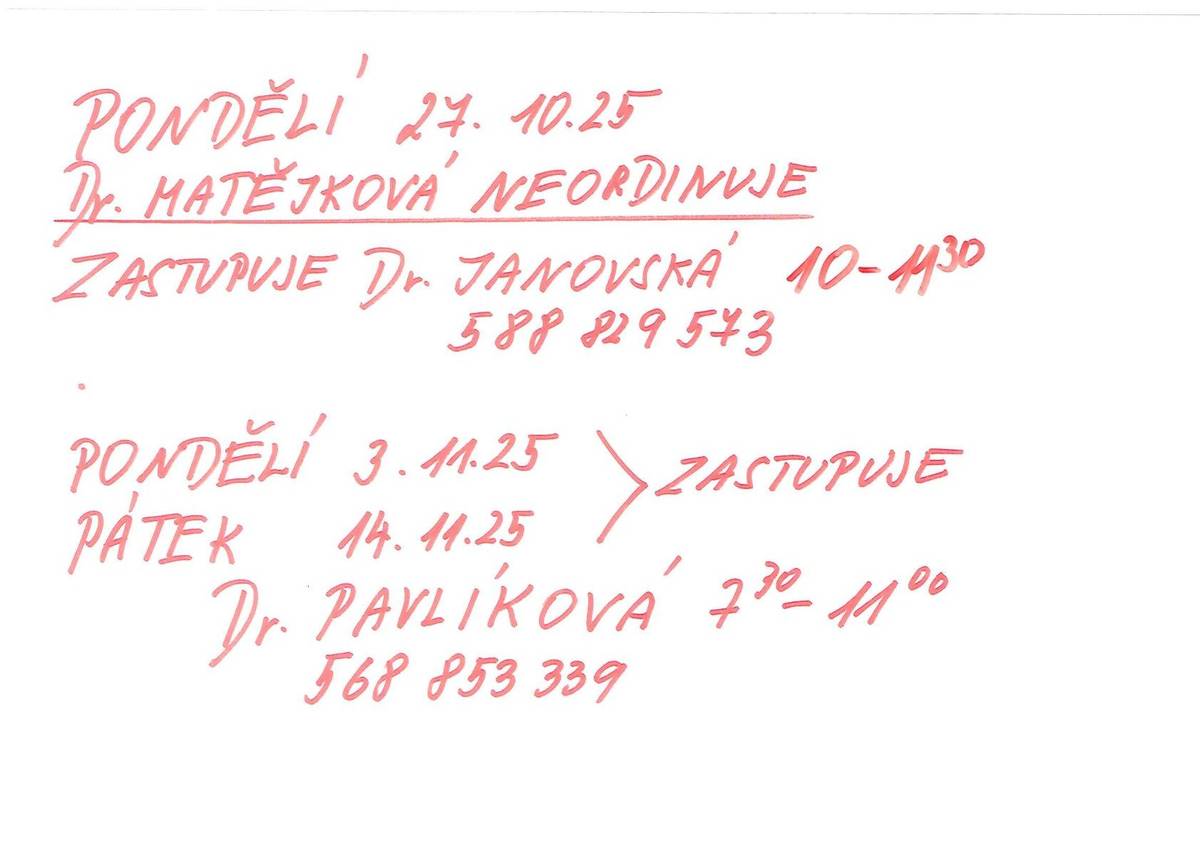 PONDĚLÍ 27. 10.25
Dr. MATĚJKOVÁ NEORDINUJE
ZASTUPUJE Dr. JANOVSKÁ 10-11³⁰
588 829 573
PONDĚLÍ 3.11.25 ZASTUPUJE
PÁTEK 14.11.25
Dr. PAVLÍKOVÁ 7³⁰-11⁰⁰
568 853 339